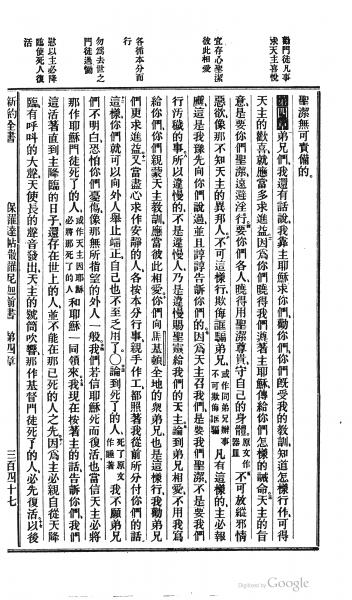 勸門徒凡事
求天主喜悅
宜存心聖潔
彼此相愛
各循本分而
行
勿爲去世之
門徒過慟
慰以主必降
臨使死人復
活
聖潔無可責備的。
第四章 弟兄們、我還有話說、我靠主耶穌求你們、勸你們、你們旣受我的教訓、知道怎樣行作、可得
天主的歡喜、就應當多求進益、因爲你們曉得我們遵著主耶穌傳給你們怎樣的誡命、天主的旨
意是要你們聖潔、遠避淫行、要你們各人、曉得用聖潔尊貴、守自己的身體、原文作器皿 不可放縱邪情
惡欲、像那不知天主的異邦人、不可這樣行、欺侮誆騙弟兄、或作同弟兄辦事不可欺侮誆騙 凡有這樣的、主必報
應、這是我豫先向你們說過、並且諄諄告訴你們的、因爲天主召我們、是要我們聖潔、不是要我們
行汚穢的事、所以違慢的、不是違慢人、乃是違慢賜聖靈給我們的天主、論到弟兄相愛、不用我寫
給你們、你們親蒙天主教訓、應當彼此相愛、你們向馬基頓全地的衆弟兄、也是這樣行、我勸弟兄
們更求進益、又當盡心求作安靜的人、各按本分行事、親手作工、都照著我從前所分付你們的話、
這樣、你們就可以向外人舉止端正、自己也不至乏用了〇論到死了的人、死了原文作睡著 我不願弟兄
們不明白、恐怕你們憂傷、像那無所指望的外人一般、我們若信耶穌死而復活、也當信天主必將
那作耶穌門徒死了的人、或作天主因耶穌必將那死了的人 和耶穌一同領來、我現在按著主的話告訴你們、我們
這活著直到主降臨的日子、還存在世上的人、並不能在那已死的人之先、因爲主必親自從天降
臨、有呼叫的大聲、天使長的聲音發出、天主的號筒吹響、那作基督門徒死了的人、必先復活、以後
新約全書 保羅達帖撒羅尼迦前書 第四章 三百四十七
Digitized by Google